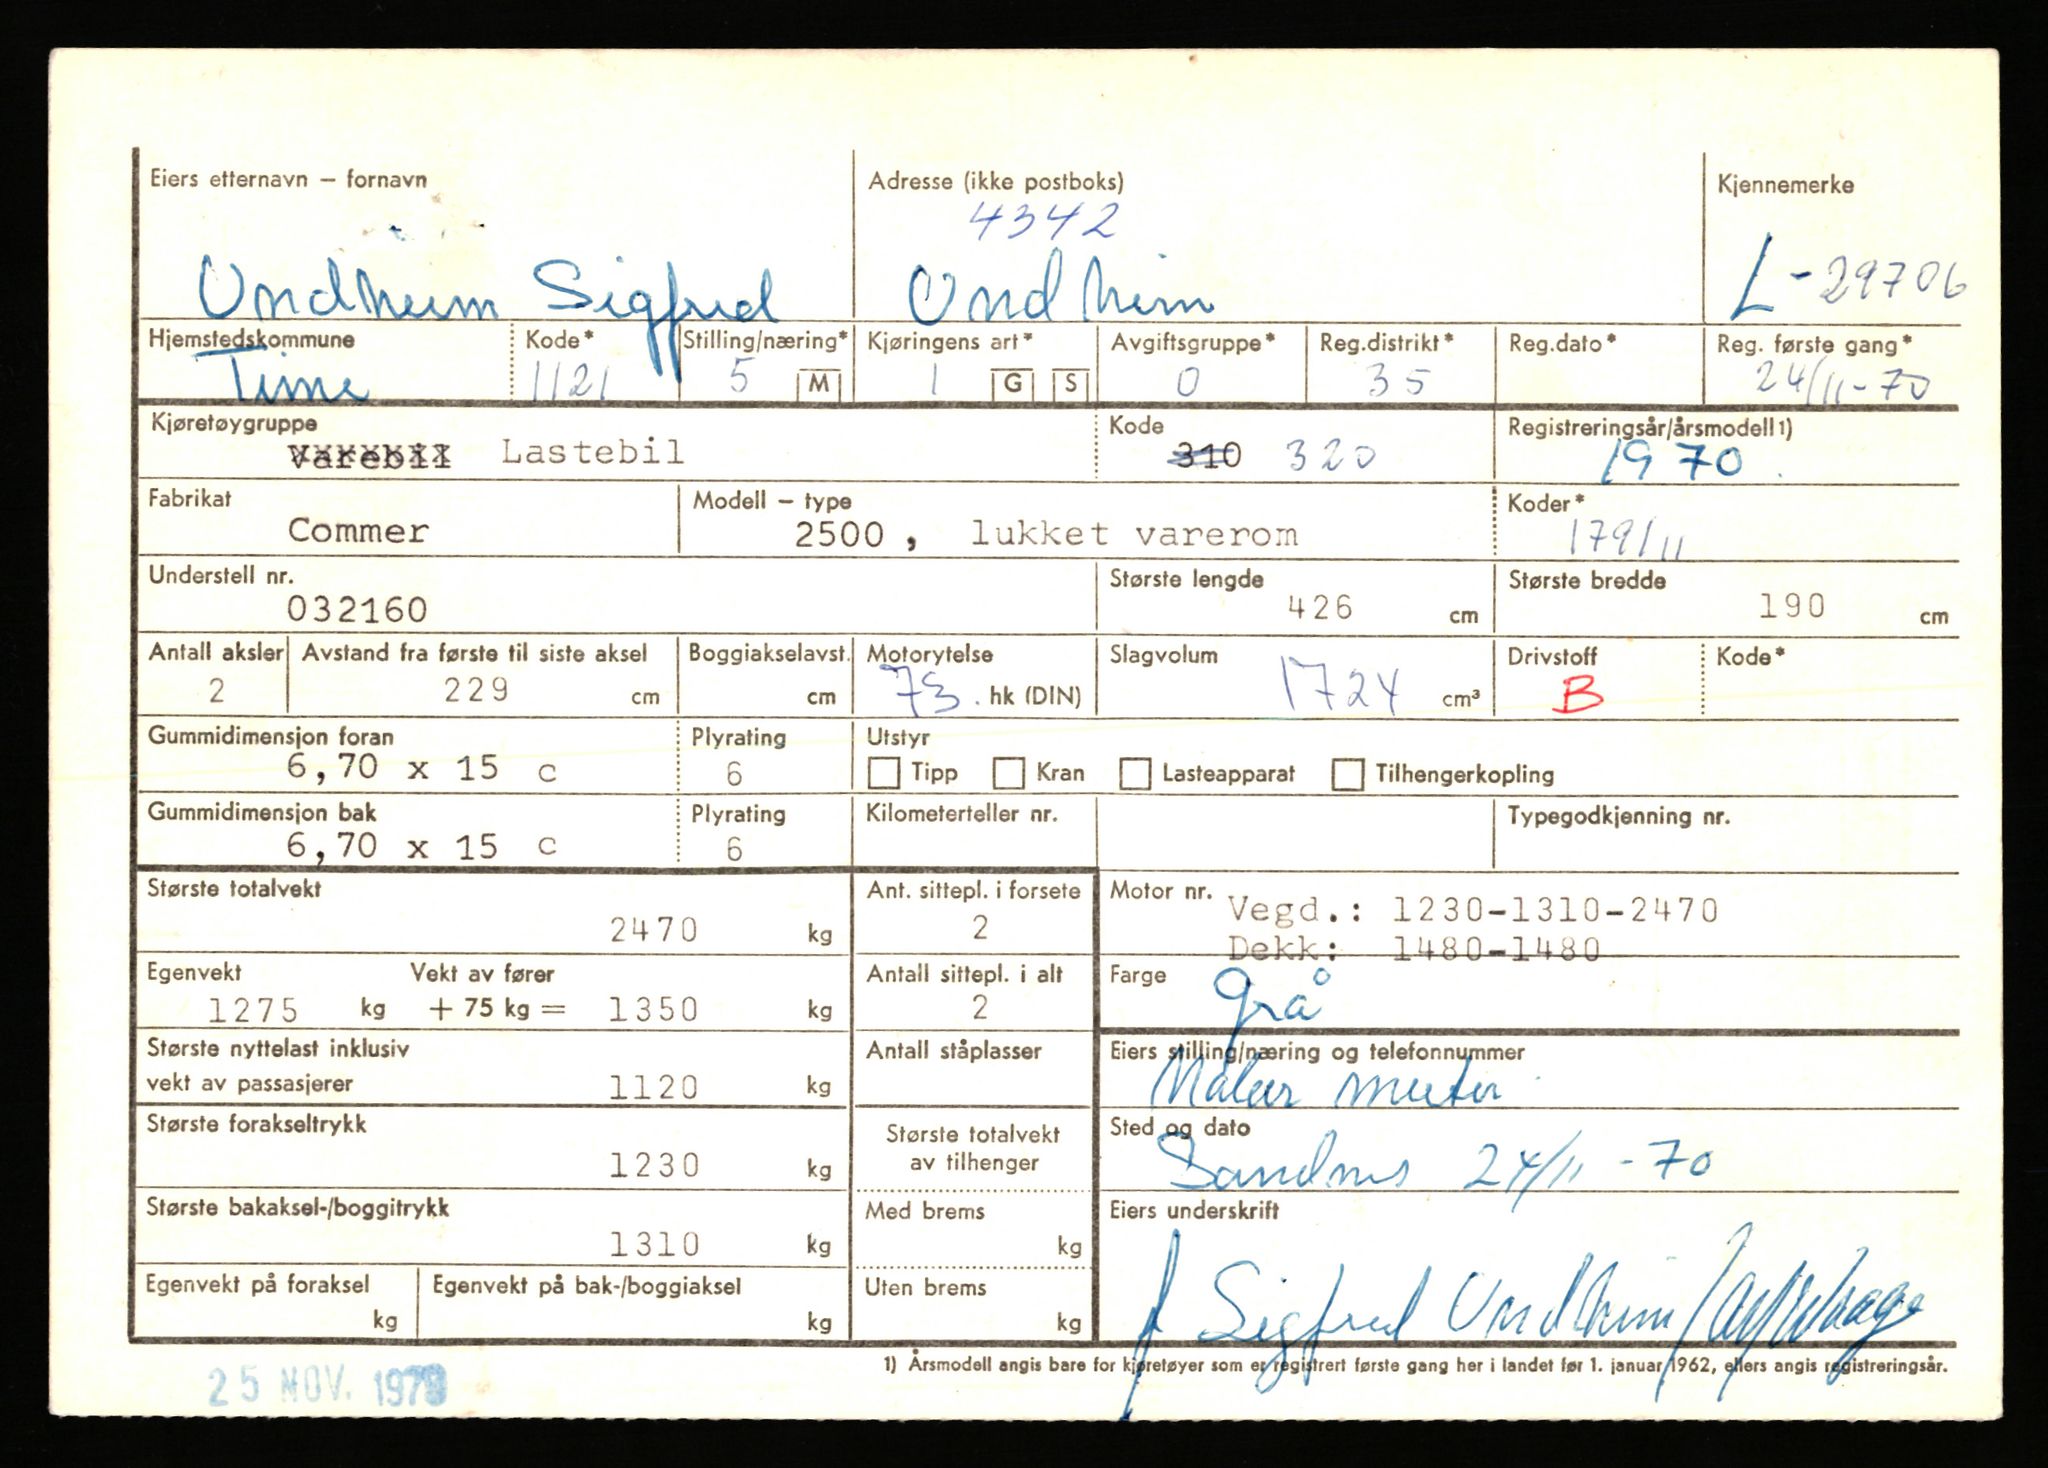 Eiers etternavn – fornavn
Adresse (ikke postboks)
Kjennemerke
4342
Undheim Sigfred
Undheim
L-29706
Hjemstedskommune
Kode*
Stilling/næring*
Kjøringens art*
Avgiftsgruppe*
Reg.distrikt*
Reg.dato*
Reg. første gang*
Time
1121
5 M
1 G S
0
35
24/11-70
Kjøretøygruppe
Kode
Registreringsår/årsmodell 1)
Varebil Lastebil
310 320
1970
Fabrikat
Modell – type
Koder*
Commer
2500, lukket varerom
179/11
Understell nr.
Største lengde
Største bredde
032160
426 cm
190 cm
Antall aksler
Avstand fra første til siste aksel
Boggiakselavst.
Motorytelse
Slagvolum
Drivstoff
Kode*
2
229 cm
cm
73. hk (DIN)
1724 cm³
B
Gummidimensjon foran
Plyrating
Utstyr
6,70 x 15 c
6
Tipp Kran Lasteapparat Tilhengerkopling
Gummidimensjon bak
Plyrating
Kilometerteller nr.
Typegodkjenning nr.
6,70 x 15 c
6
Største totalvekt
2470 kg
Ant. sittepl. i forsete
2
Motor nr. Vegd.: 1230-1310-2470
Dekk: 1480-1480
Egenvekt
Vekt av fører
1275 kg + 75 kg = 1350 kg
Antall sittepl. i alt
2
Farge
grå
Største nyttelast inklusiv
vekt av passasjerer
1120 kg
Antall ståplasser
Eiers stilling/næring og telefonnummer
Maler mester
Største forakseltrykk
1230 kg
Største totalvekt
av tilhenger
Sted og dato
Sandnes 24/11-70
Største bakaksel-/boggitrykk
1310 kg
Med brems
kg
Eiers underskrift
f Sigfred Undheim
Egenvekt på foraksel
kg
Egenvekt på bak-/boggiaksel
kg
Uten brems
kg
1) Årsmodell angis bare for kjøretøyer som er registrert første gang her i landet før 1. januar 1962, ellers angis registreringsår.
25 NOV. 1970